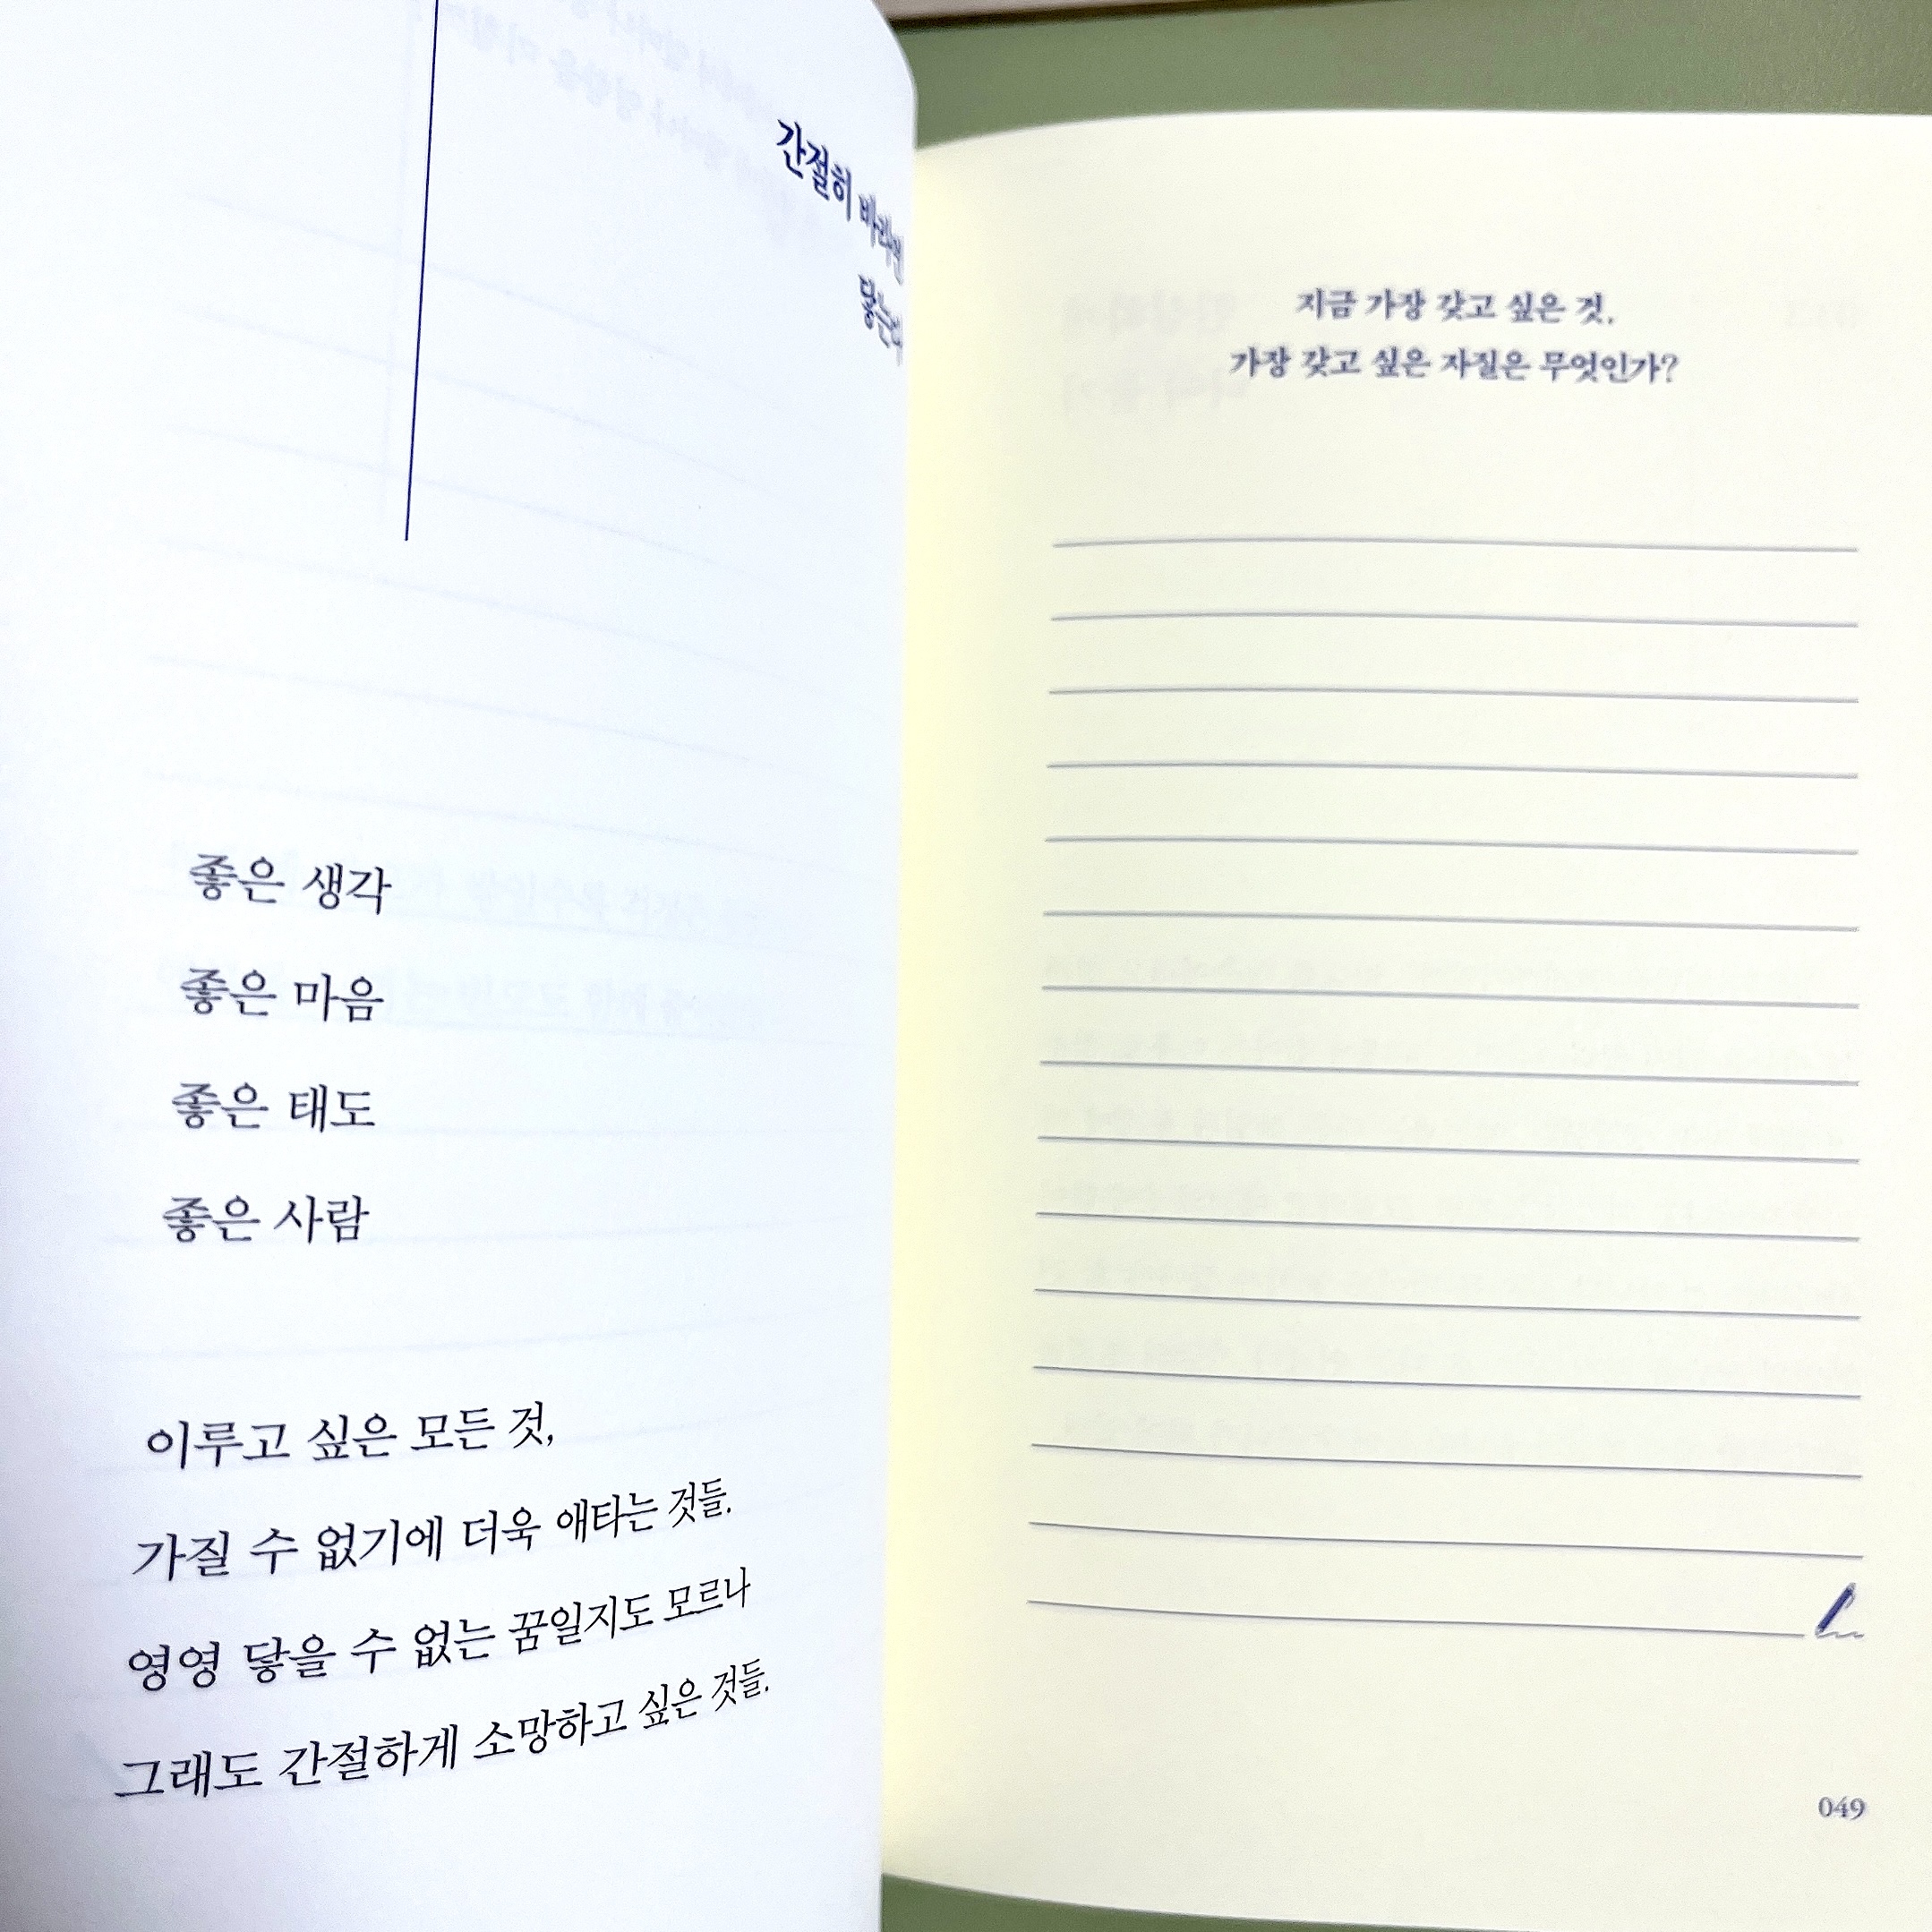 간절히 바라면
닿는다
좋은 생각
좋은 마음
좋은 태도
좋은 사람
이루고 싶은 모든 것,
가질 수 없기에 더욱 애타는 것들.
영영 닿을 수 없는 꿈일지도 모르나
그래도 간절하게 소망하고 싶은 것들.
지금 가장 갖고 싶은 것,
가장 갖고 싶은 자질은 무엇인가?
049